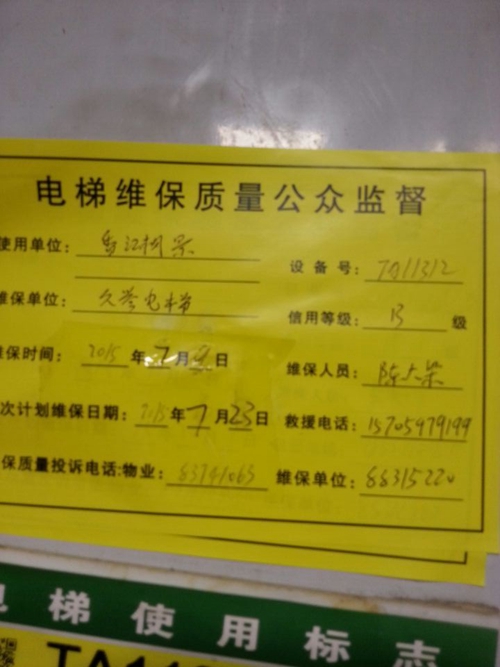 电梯维保质量公众监督
使用单位: 香江枫景
设备号: TA11312
维保单位: 久誉电梯
信用等级: B 级
维保时间: 2015 年 7 月 9 日
维保人员: 陈大荣
次计划维保日期: 2015 年 7 月 23 日
救援电话: 15705979199
保质量投诉电话:物业: 83741063
维保单位: 88315220
电梯使用标志
TA11